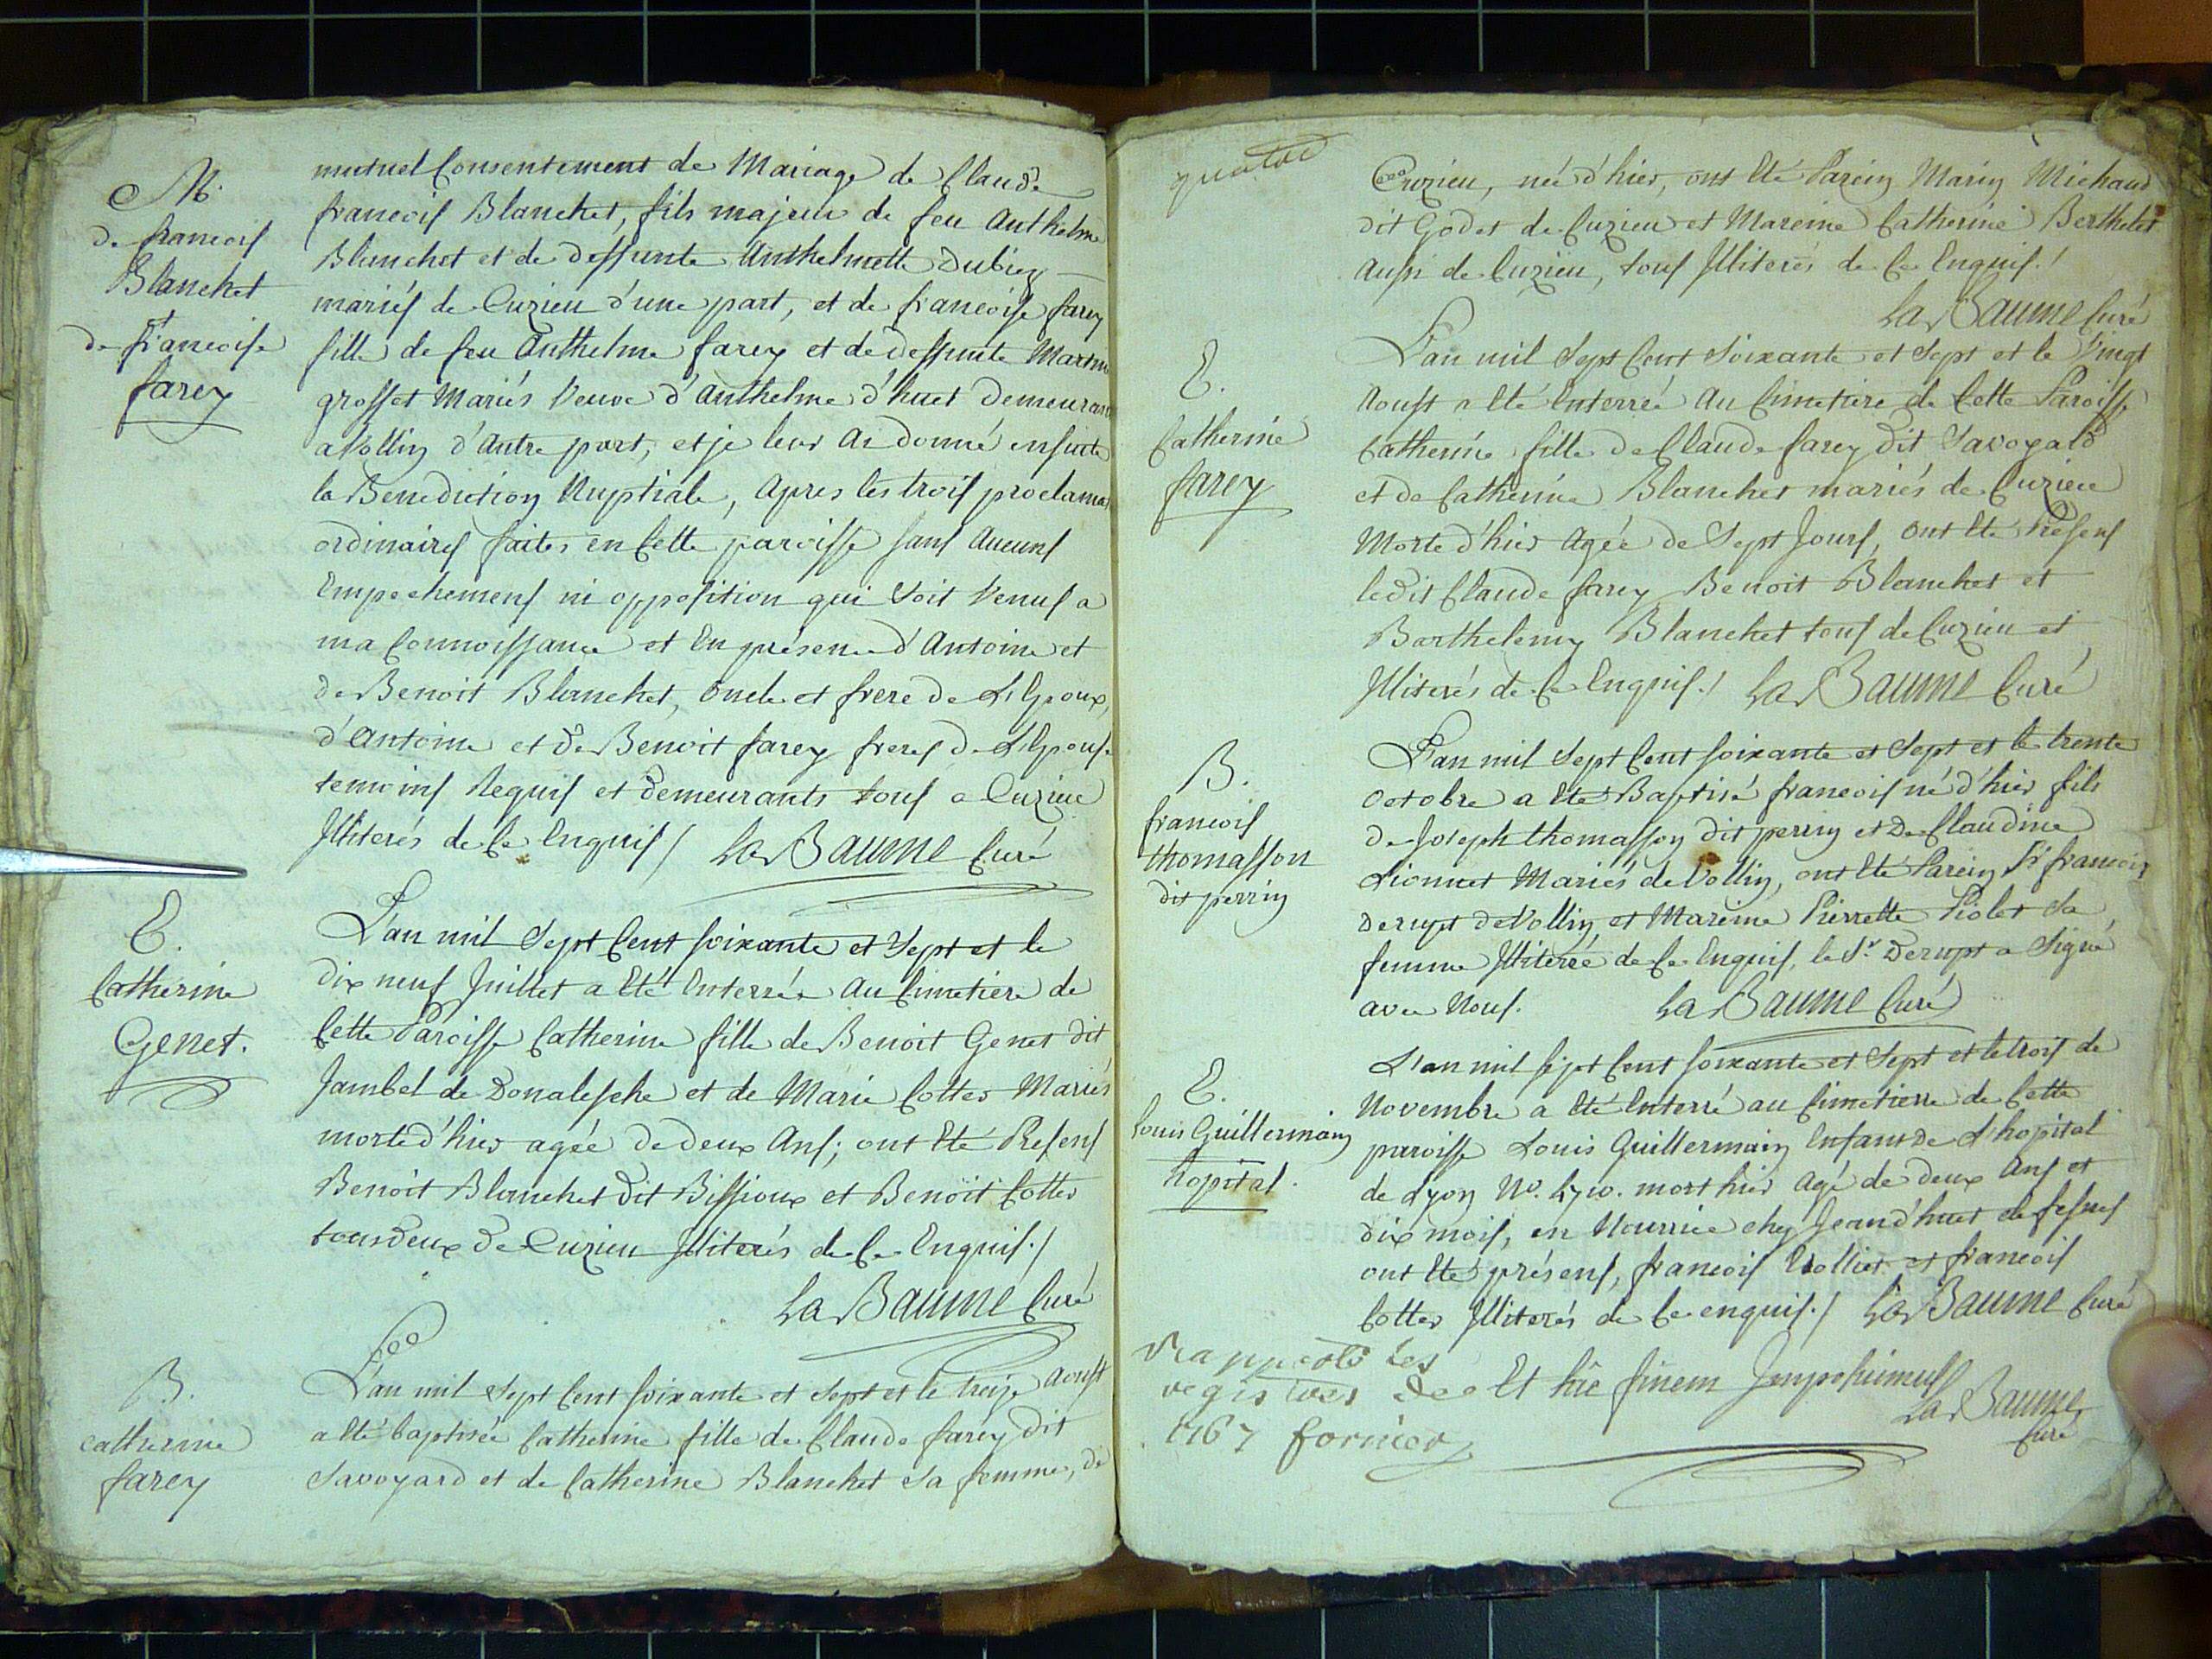 M.
de francois
Blanchet
et
de francoise
farcy
mutuel Consentement de Mariage de Claude
francois Blanchet, fils majeur de feu Anthelme
Blanchet et de deffunte Anthelmette Dubiez
mariés de Cuzieu d'une part, et de francoise farcy
fille de feu Anthelme farcy et de deffunte Marine
grosset Mariés Veuve d'Anthelme d'huet demeurant
a Vollin d'autre part, et je leur ai donné ensuite
la Benediction Nuptiale, apres les trois proclama
ordinaires faites en Cette paroisse sans Aucuns
Empechemens ni opposition qui soit Venus a
ma Connoissance et En présence d'Antoine et
de Benoit Blanchet, oncle et frere de L'Epoux,
d'Antoine et de Benoit farcy freres de L'Epouse
temoins Requis et demeurants tous a Cuzieu
Illiterés de ce Enquis / La Baume Curé
E.
Catherine
Genet.
L'an mil Sept Cent soixante et Sept et le
dix neuf Juillet a Eté Enterrée au Cimetiere de
Cette Paroisse Catherine fille de Benoit Genet dit
Jambel de Donalesche et de Marie Cottes Mariés
morte d'hier agée de deux Ans; ont Eté Presens
Benoit Blanchet dit Bissioux et Benoit Cottes
tous deux de Cuzieu Illiterés de ce Enquis./
La Baume Curé
B.
catherine
farcy
L'an mil Sept Cent soixante et sept et le treize Aoust
a Eté baptisée Catherine fille de Claude farcy dit
Savoyard et de Catherine Blanchet sa femme, de
Cuzieu, née d'hier, ont Eté Parein Marin Michaud
dit Godet de Cuzieu et Mareine Catherine Berthelet
Aussi de Cuzieu, tous Illiterés de Ce Enquis./
La Baume Curé
E.
Catherine
farcy
L'an mil Sept Cent soixante et Sept et le Vingt
Aoust a Eté Enterrée Au Cimetiere de Cette Paroisse
Catherine fille de Claude farcy dit Savoyard
et de Catherine Blanchet mariés de Cuzieu
Morte d'hier Agée de Sept Jours, ont Eté Présens
ledit Claude farcy Benoit Blanchet et
Barthelemy Blanchet tous de Cuzieu et
Illiterés de Ce Enquis./ La Baume Curé
B.
francois
thomasson
dit perrin
L'an mil Sept Cent soixante et Sept et le trente
Octobre a Eté Baptisé francois né d'hier fils
de Joseph thomasson dit perrin et de Claudine
Lionnet Mariés de Vollin, ont Eté Parein Sr francois
Derupt de Vollin et Mareine Pierrette Piolet sa
femme Illiterée de Ce Enquis, le Sr Derupt a Signé
avec Nous. La Baume Curé
E.
Louis Guillermain
hopital.
L'an mil sept Cent soixante et Sept et le trois de
Novembre a Eté Enterré au Cimetiere de Cette
paroisse Louis Guillermain Enfant de L'hopital
de Lyon No. mort hier Agé de deux Ans et
dix mois, en Nourrice chez Jean d'huet
ont Eté présens, francois Trollier et francois
Cottes Illiterés de Ce enquis./ La Baume Curé
Et hic finem Imposuimus
La Baume
Curé
rapporté les
registres de
1767 fornier